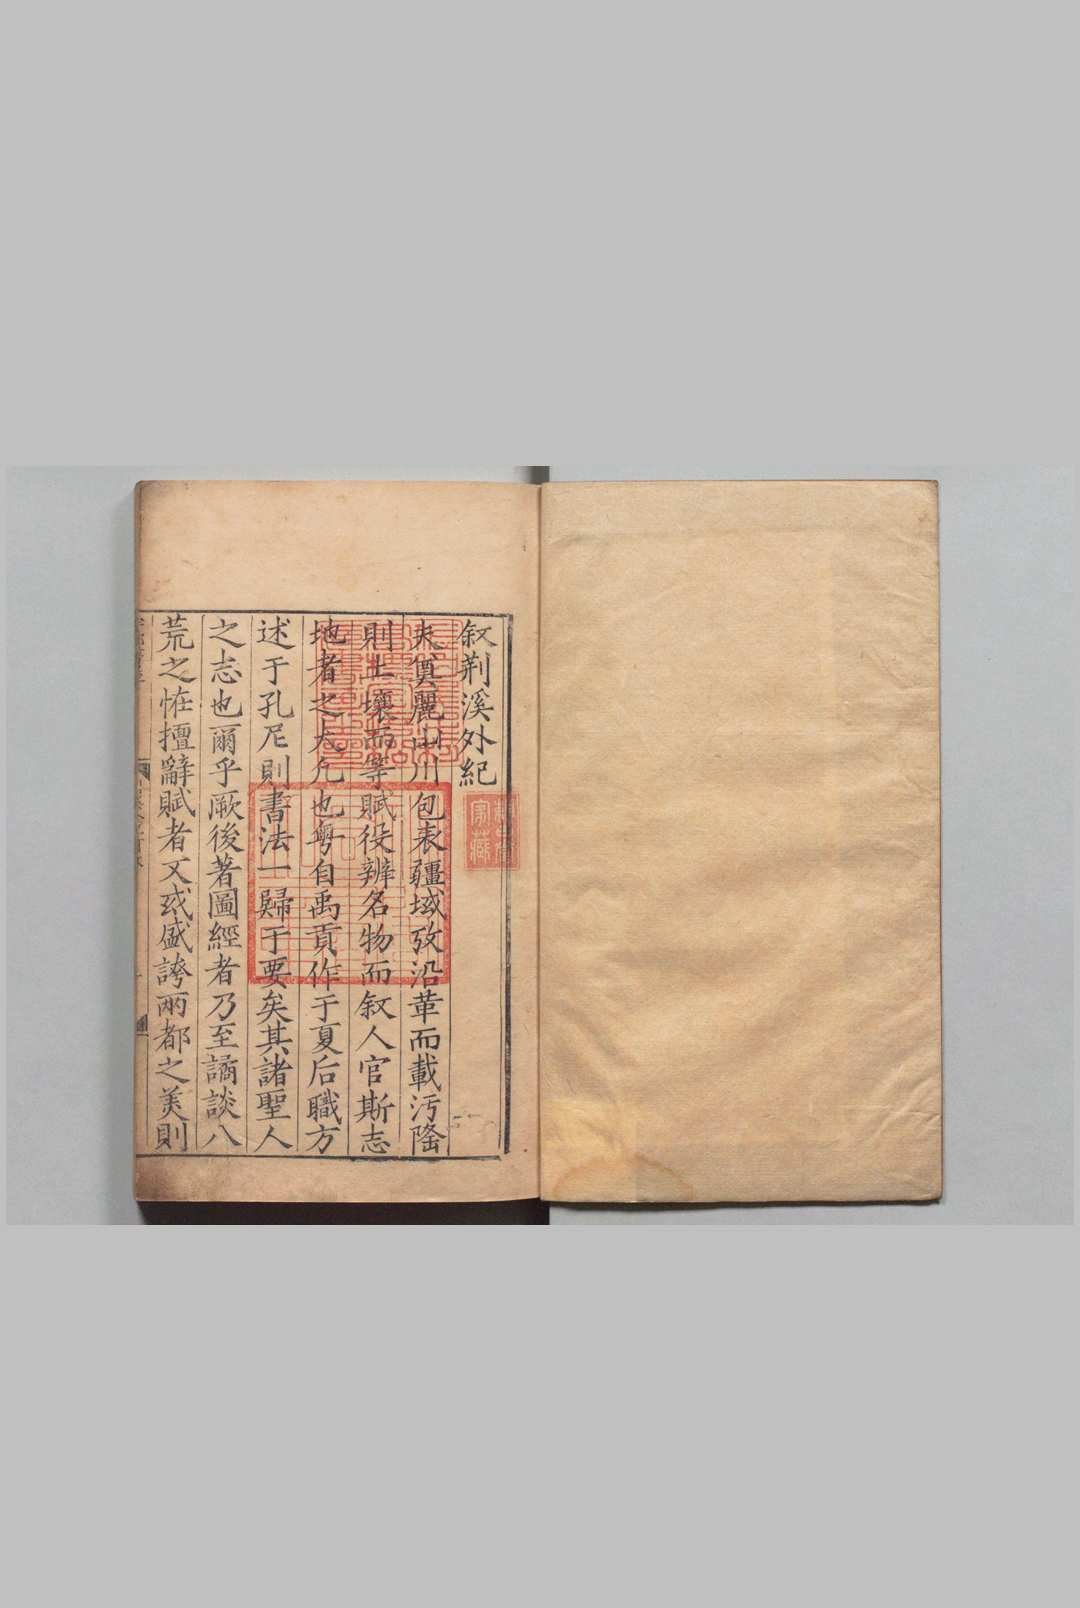 叙荆溪外紀
夫奠麗山川包表疆域攷沿革而載汚隆
則土壤而等賦役辨名物而叙人官斯志
地者之大凡也粤自禹貢作于夏后職方
述于孔尼則書法一歸于要矣其諸聖人
之志也爾乎厥後著圖經者乃至譎談八
荒之恠擅辭賦者又或盛誇兩都之美則
家藏